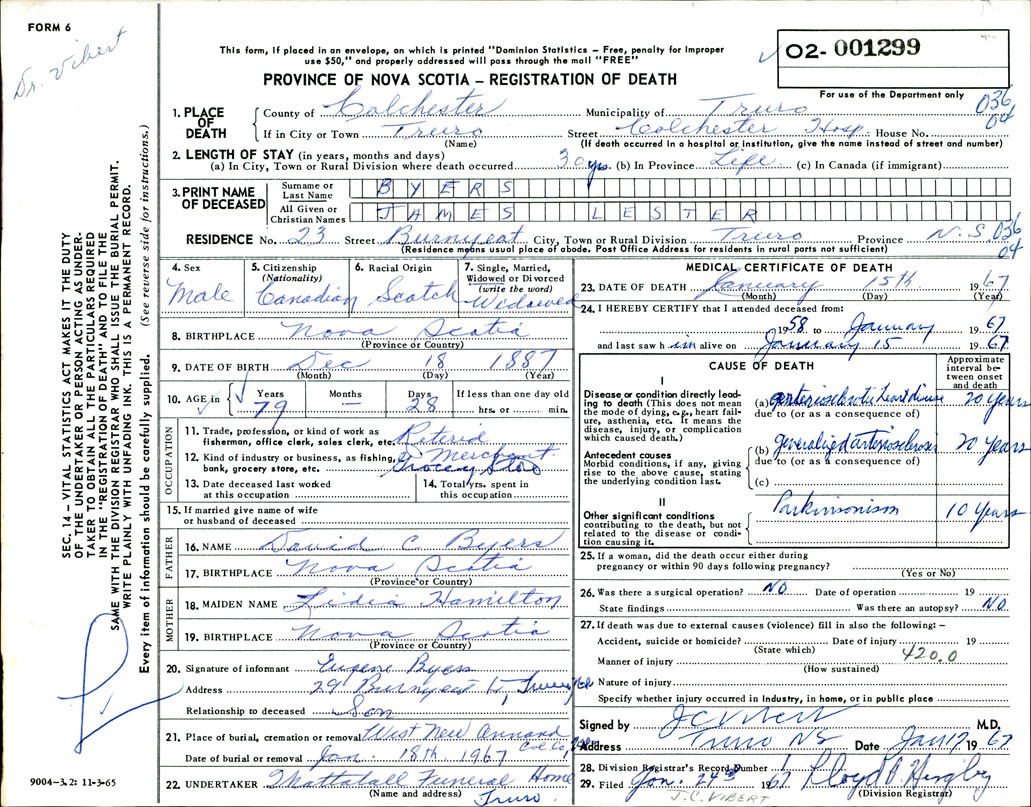 FORM 6
Dr. Vibert
This form, if placed in an envelope, on which is printed "Dominion Statistics – Free, penalty for improper
use $50," and properly addressed will pass through the mail "FREE"
PROVINCE OF NOVA SCOTIA – REGISTRATION OF DEATH
02- 001299
For use of the Department only
036
04
1. PLACE OF DEATH
County of Colchester Municipality of Truro
If in City or Town Truro Street Colchester Hosp. House No.
(Name) (If death occurred in a hospital or institution, give the name instead of street and number)
2. LENGTH OF STAY (in years, months and days)
(a) In City, Town or Rural Division where death occurred 30 yrs. (b) In Province Life (c) In Canada (if immigrant)
3. PRINT NAME OF DECEASED
Surname or Last Name BYERS
All Given or Christian Names JAMES LESTER
RESIDENCE No. 23 Street Burnyeat City, Town or Rural Division Truro Province N.S. 036
04
(Residence means usual place of abode. Post Office Address for residents in rural parts not sufficient)
4. Sex Male
5. Citizenship (Nationality) Canadian
6. Racial Origin Scotch
7. Single, Married, Widowed or Divorced (write the word) Widowed
8. BIRTHPLACE Nova Scotia
(Province or Country)
9. DATE OF BIRTH Dec 18 1887
(Month) (Day) (Year)
10. AGE in Years 79 Months – Days 28 If less than one day old hrs. or min.
OCCUPATION
11. Trade, profession, or kind of work as
fisherman, office clerk, sales clerk, etc. Retired
12. Kind of industry or business, as fishing, Merchant
bank, grocery store, etc. Grocery Store
13. Date deceased last worked
at this occupation
14. Total yrs. spent in
this occupation
15. If married give name of wife
or husband of deceased
FATHER
16. NAME David C Byers
17. BIRTHPLACE Nova Scotia
(Province or Country)
MOTHER
18. MAIDEN NAME Lidia Hamilton
19. BIRTHPLACE Nova Scotia
(Province or Country)
20. Signature of informant Eugene Byers
Address 29 Burnyeat St, Truro
Relationship to deceased Son
21. Place of burial, cremation or removal West New Annand
Col. Co.
Date of burial or removal Jan. 18th 1967
22. UNDERTAKER Mattatall Funeral Home
(Name and address) Truro.
MEDICAL CERTIFICATE OF DEATH
23. DATE OF DEATH January 15th 1967
(Month) (Day) (Year)
24. I HEREBY CERTIFY that I attended deceased from:
1958 to January 1967
and last saw him alive on January 15 1967.
CAUSE OF DEATH
Approximate interval between onset and death
I
Disease or condition directly leading
to death (This does not mean
the mode of dying, e.g., heart failure,
asthenia, etc. It means the
disease, injury, or complication
which caused death.)
(a) arteriosclerotic heart disease 20 years
due to (or as a consequence of)
Antecedent causes
Morbid conditions, if any, giving
rise to the above cause, stating
the underlying condition last.
(b) generalized arteriosclerosis 20 years
due to (or as a consequence of)
(c)
II
Other significant conditions
contributing to the death, but not
related to the disease or condition
causing it.
Parkinsonism 10 years
25. If a woman, did the death occur either during
pregnancy or within 90 days following pregnancy?
(Yes or No)
26. Was there a surgical operation? NO Date of operation 19
State findings Was there an autopsy? NO
27. If death was due to external causes (violence) fill in also the following: –
Accident, suicide or homicide? Date of injury 19
(State which) 420.0
Manner of injury
(How sustained)
Nature of injury
Specify whether injury occurred in industry, in home, or in public place
Signed by J C Vibert M.D.
Address Truro NS Date Jan 17 1967
28. Division Registrar's Record Number 1
29. Filed Jan. 24th 1967
J.C. VIBERT (Division Registrar)
SEC. 14 – VITAL STATISTICS ACT MAKES IT THE DUTY
OF THE UNDERTAKER OR PERSON ACTING AS UNDERTAKER
TO OBTAIN ALL THE PARTICULARS REQUIRED
IN THE "REGISTRATION OF DEATH" AND TO FILE THE
SAME WITH THE DIVISION REGISTRAR WHO SHALL ISSUE THE BURIAL PERMIT.
WRITE PLAINLY WITH UNFADING INK. THIS IS A PERMANENT RECORD.
Every item of information should be carefully supplied. (See reverse side for instructions.)
9004–3.2: 11-3-65